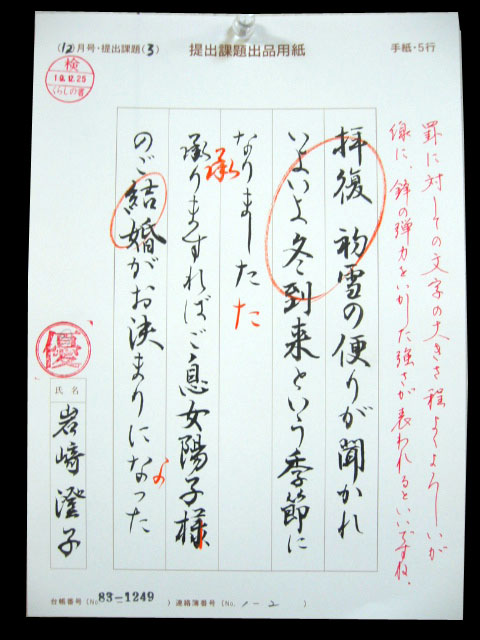 (12)月号・提出課題(3)
提出課題出品用紙
手紙・5行
検
19.12.25
くらしの書
罫に対しその文字の大きさ程よくよろしいが
線に、鋒の弾力をいかした強さが表われるといいですね。
拝復 初雪の便りが聞かれ
いよいよ冬到来という季節に
なりました た
承
承りますればご息女陽子様
のご結婚がお決まりになった
な
優
氏名
岩﨑澄子
台帳番号(No. 83-1249)連絡簿番号(No. 1-2)